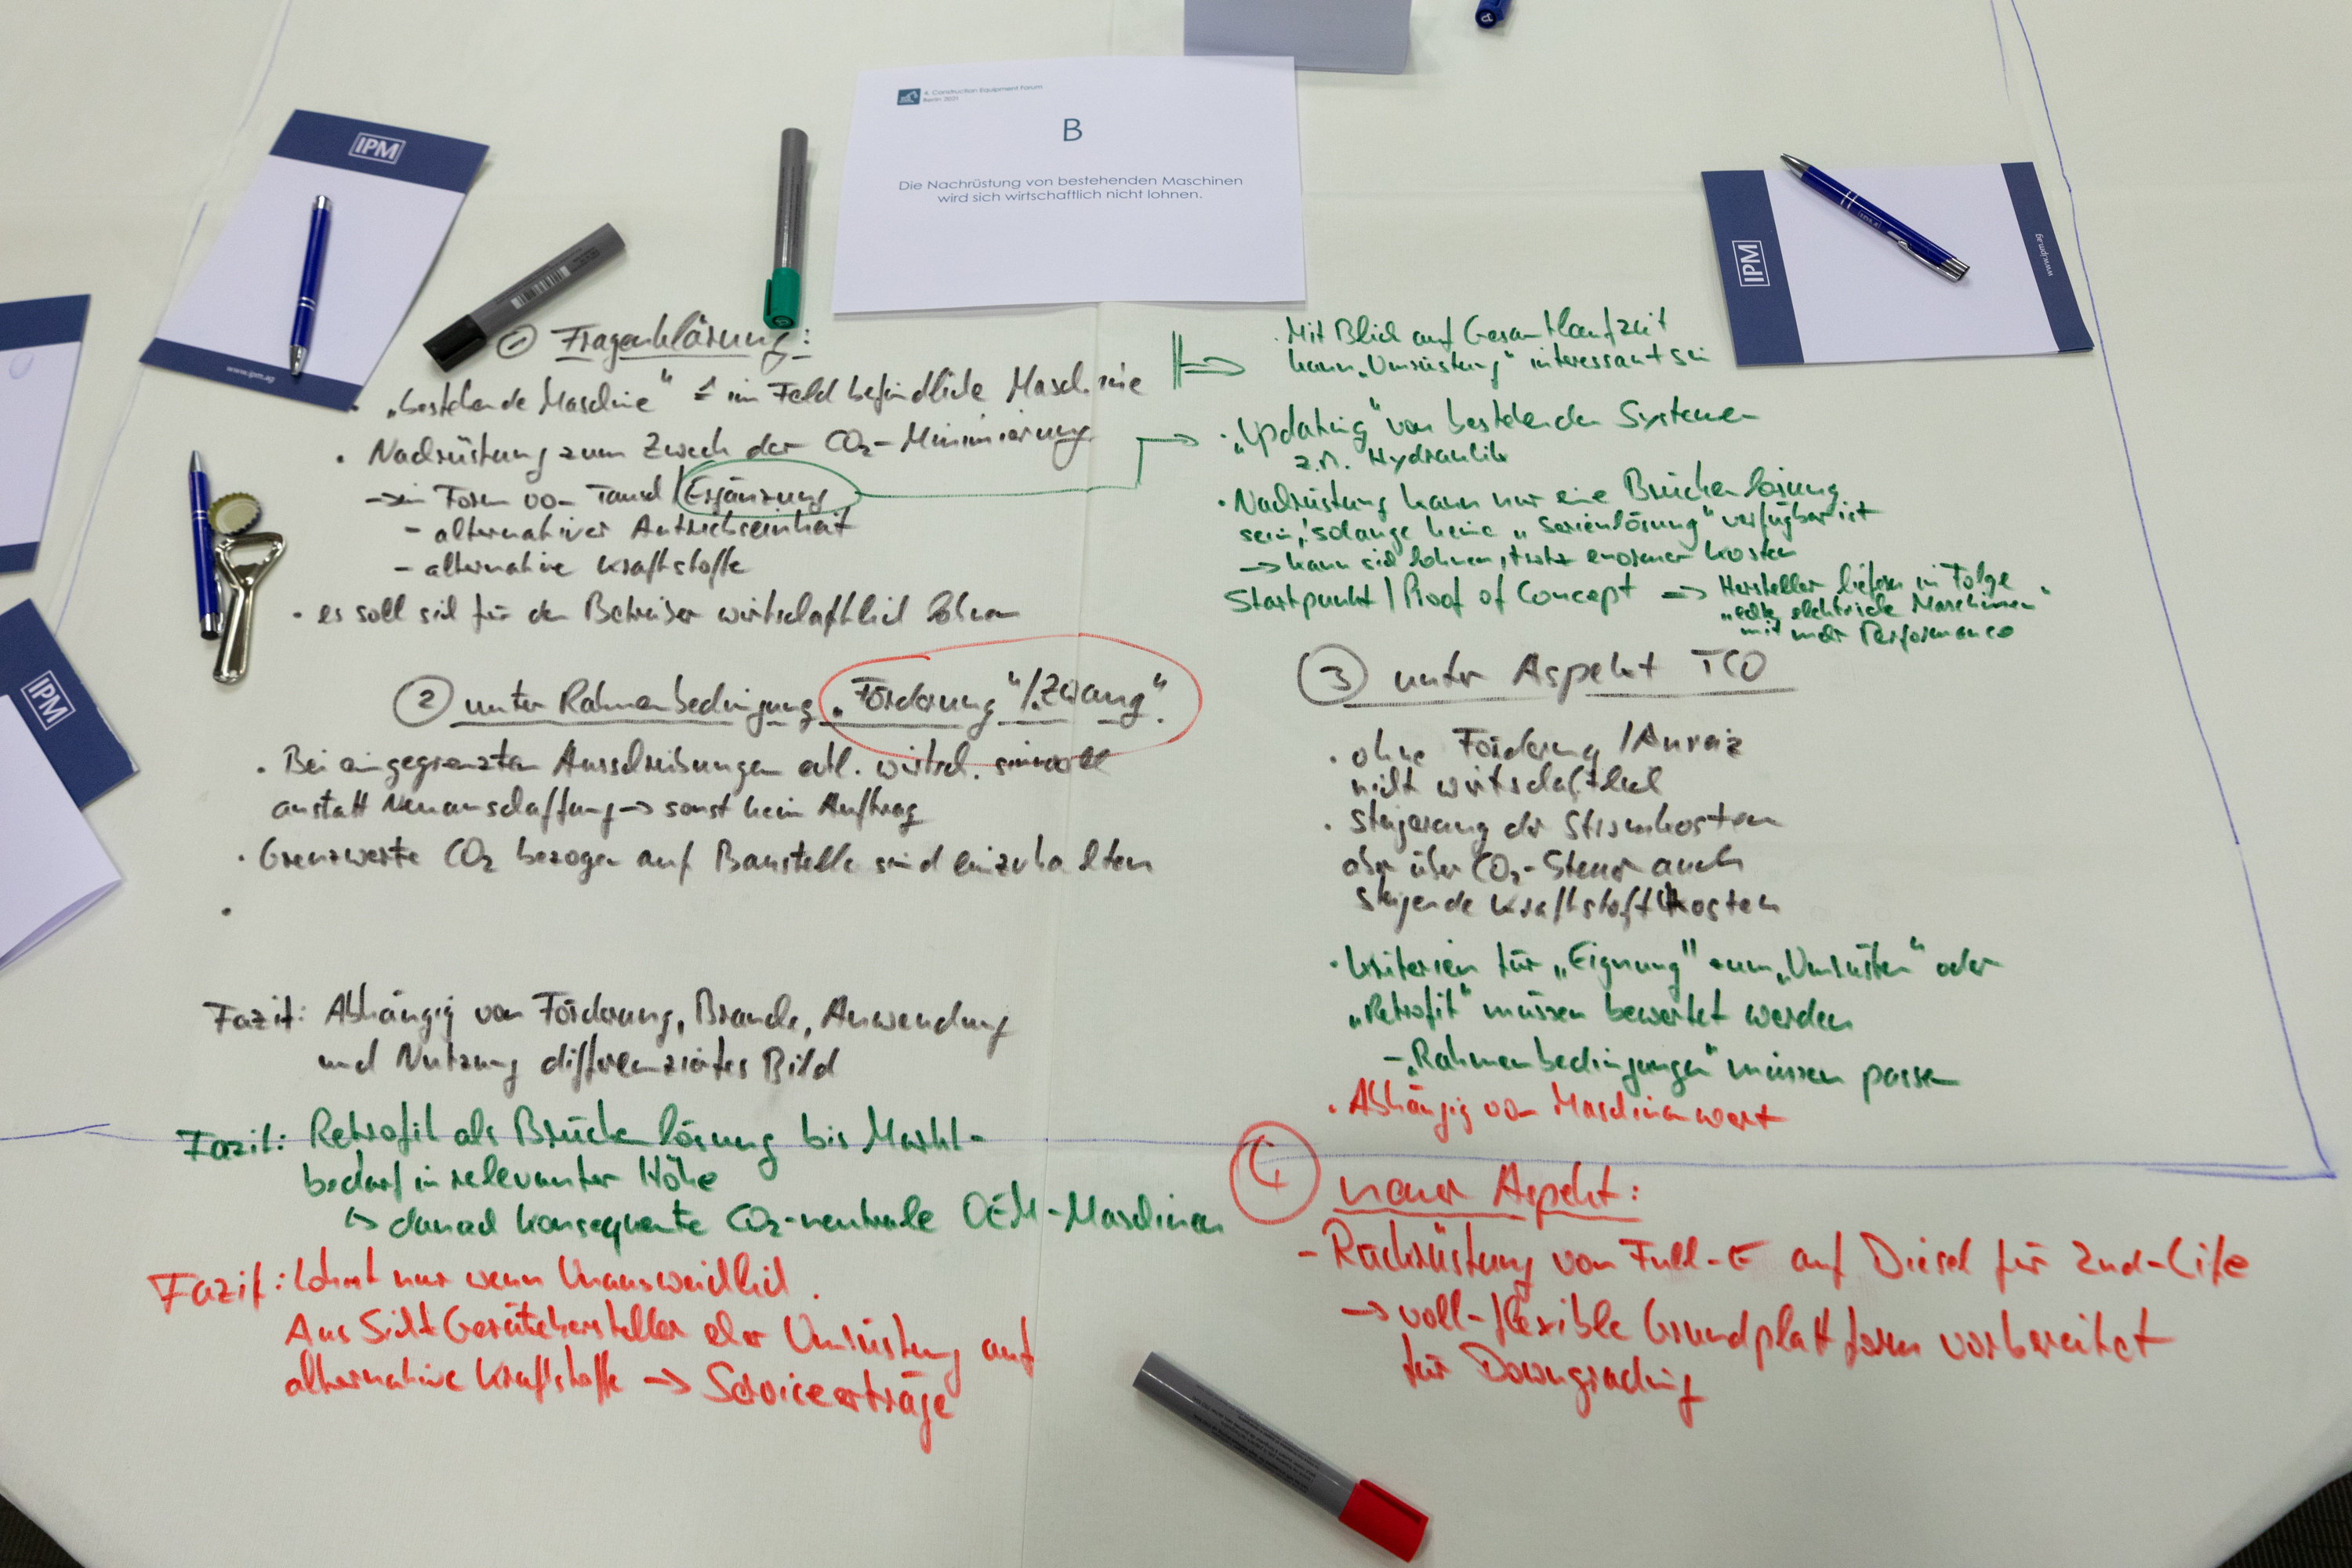 4. Construction Equipment Forum
Berlin 2021
B
Die Nachrüstung von bestehenden Maschinen
wird sich wirtschaftlich nicht lohnen.
IPM
www.ipm.ag
IPM
www.ipm.ag
IPM
① Fragenklärung:
• „bestehende Maschine" ≙ im Feld befindliche Maschine
• Nachrüstung zum Zweck der CO₂-Minimierung
→ in Form von Tausch/Ergänzung
- alternativer Antriebseinheit
- alternative Kraftstoffe
• es soll sich für den Betreiber wirtschaftlich lohnen
② unter Rahmenbedingung „Förderung"/„Zwang".
• Bei eingegrenzten Ausschreibungen evtl. wirtsch. sinnvoll
anstatt Neuanschaffung → sonst kein Auftrag
• Grenzwerte CO₂ bezogen auf Baustelle sind einzuhalten
•
Fazit: Abhängig von Förderung, Branche, Anwendung
und Nutzung differenziertes Bild
Fazit: Retrofit als Brückenlösung bis Markt-
bedarf in relevanter Höhe
↳ danach konsequente CO₂-neutrale OEM-Maschinen
Fazit: Lohnt nur wenn Unausweichlich.
Aus Sicht Gerätehersteller eher Umrüstung auf
alternative Kraftstoffe → Serviceerträge
• Mit Blick auf Gesamtlaufzeit
kann „Umrüstung" interessant sein
• „Updating" von bestehenden Systemen
z.B. Hydraulik
• Nachrüstung kann nur eine Brückenlösung
sein, solange keine „Serienlösung" verfügbar ist
→ kann sich lohnen, trotz enormer Kosten
Startpunkt / Proof of Concept → Hersteller liefern in Folge
„echte elektrische Maschinen"
mit mehr Performance
③ unter Aspekt TCO
• ohne Förderung / Anreiz
nicht wirtschaftlich
• Steigerung der Stromkosten
aber über CO₂-Steuer auch
steigende Kraftstoffkosten
• Kriterien für „Eignung" zum „Umrüsten" oder
„Retrofit" müssen bewertet werden
- „Rahmenbedingungen" müssen passen
• Abhängig von Maschinenwert
④ neuer Aspekt:
- Rückrüstung von Full-E auf Diesel für 2nd-Life
→ voll-flexible Grundplattform vorbereitet
für Downgrading